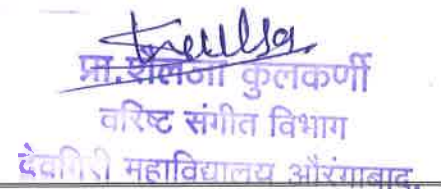 प्रा. शैलजा कुलकर्णी
वरिष्ट संगीत विभाग
देवगिरी महाविद्यालय औरंगाबाद.